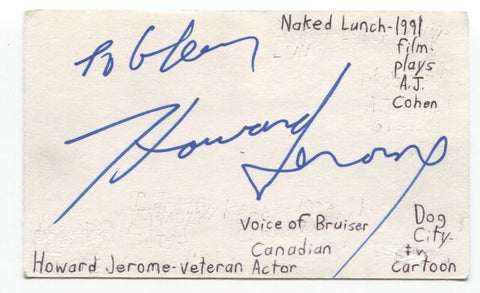 Naked Lunch-1991
film-
plays
A.J.
Cohen
To Glen
Howard
Jerome
Voice of Bruiser
Canadian
Howard Jerome-veteran Actor
Dog
City-
tv
Cartoon